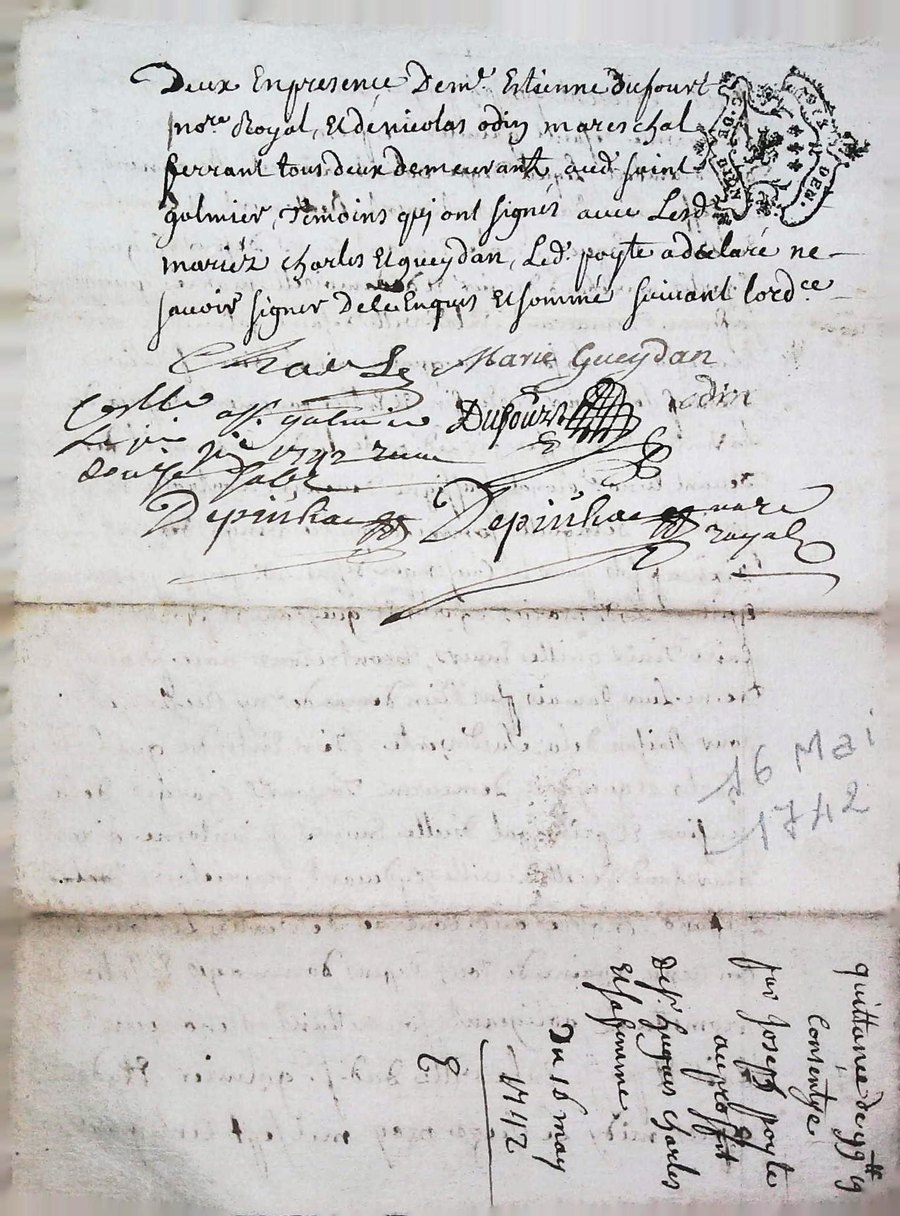 Deux En presence De m.e Estienne Dufourt
no.re Royal, Et de nicolas odin mareschal
ferrant tous deux demeurant aud.t saint
galmier, Témoins qui ont signés avec Lesd.
mariéz charles Et gueydan, Led. poyte a declaré ne
savoir signer De ce Enquis Et sommé suivant lord.ce
Charle Marie Gueydan
Dufourt odin
1742
Depinhac Depinhac no.re
royal
16 Mai
1742
quittance de 99 tt 19
Consentye
par Joseph poyte
au proffit
de s.r hugues charles
Et sa femme.
Du 16 may
1742